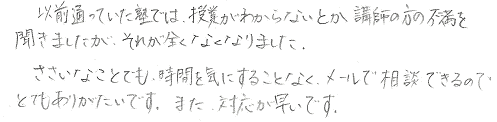 以前通っていた塾では、授業がわからないとか、講師の方の不満を
聞きましたが、それが全くなくなりました。
ささいなことでも、時間を気にすることなく、メールで相談できるので
とてもありがたいです。また、対応が早いです。